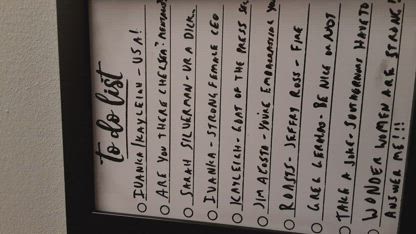 to do list
IVANKA/KAYLEIGH - USA!
ARE YOU THERE CHELSEA?
SARAH SILVERMAN - UR A DICK
IVANKA - STRONG FEMALE CEO
KAYLEIGH - GOAT OF THE PRESS
JIM ACOSTA - YOU'RE EMBARRASSING
ROASTS - JEFFREY ROSS - FINE
GREG GERALDO - BE NICE OR NOT
TAKE A JOKE - HAVE TO
WONDER WOMEN ARE STRONG!
ANSWER ME!!!